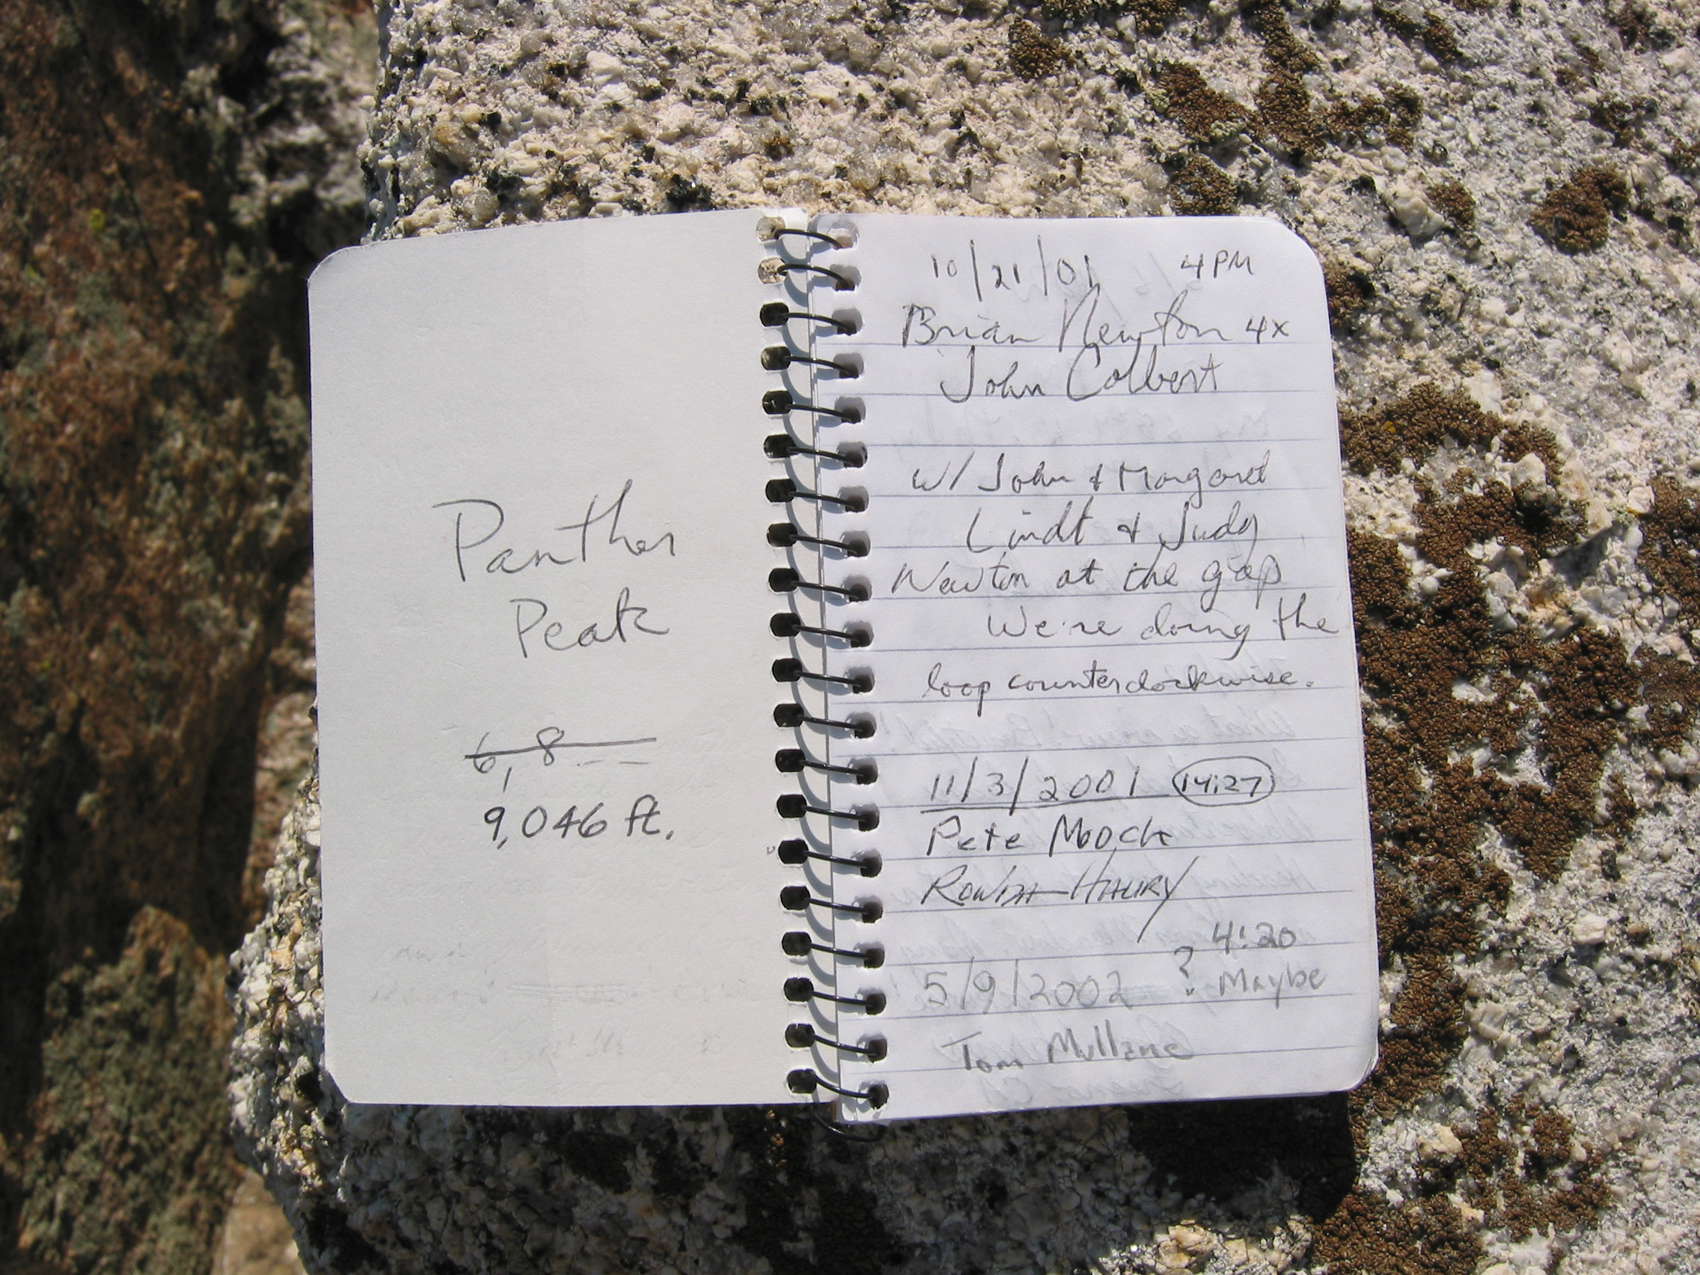 Panther
Peak
6,8
9,046 ft.
10/21/01 4PM
Brian Newton 4x
John Colbert
w/ John & Margaret
Lindt & Judy
Newton at the gap
We're doing the
loop counterclockwise.
11/3/2001 14:27
Pete Mock
4:20
5/9/2002 ? Maybe
Tom Mullane